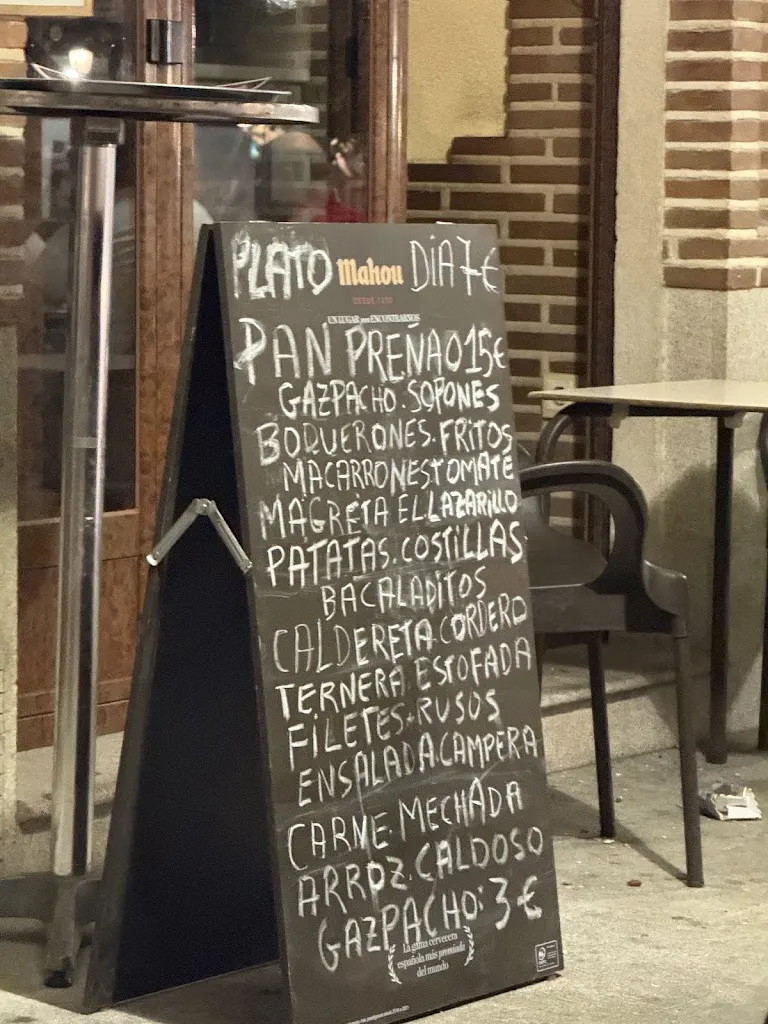 PLATO Mahou DIA 7€
DESDE 1890
UN LUGAR para ENCONTRARNOS
PAN PREÑAO 15€
GAZPACHO. SOPONES
BOQUERONES. FRITOS
MACARRONES TOMATE
MAGRETA EL LAZARILLO
PATATAS. COSTILLAS
BACALADITOS
CALDERETA. CORDERO
TERNERA ESTOFADA
FILETES. RUSOS
ENSALADA. CAMPERA
CARNE. MECHADA
ARROZ. CALDOSO
GAZPACHO: 3€
La gama cervecera
española más premiada
del mundo